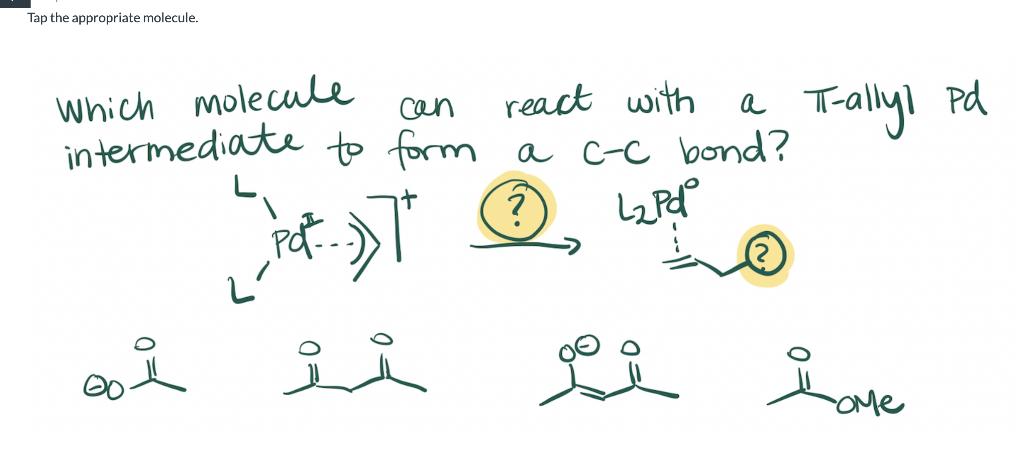 Tap the appropriate molecule.
Which molecule can react with a π-allyl Pd
intermediate to form a C-C bond?
L
L
PdII
]+
?
L2Pd0
?
⊖O O
O O
O⊖ O
O OMe